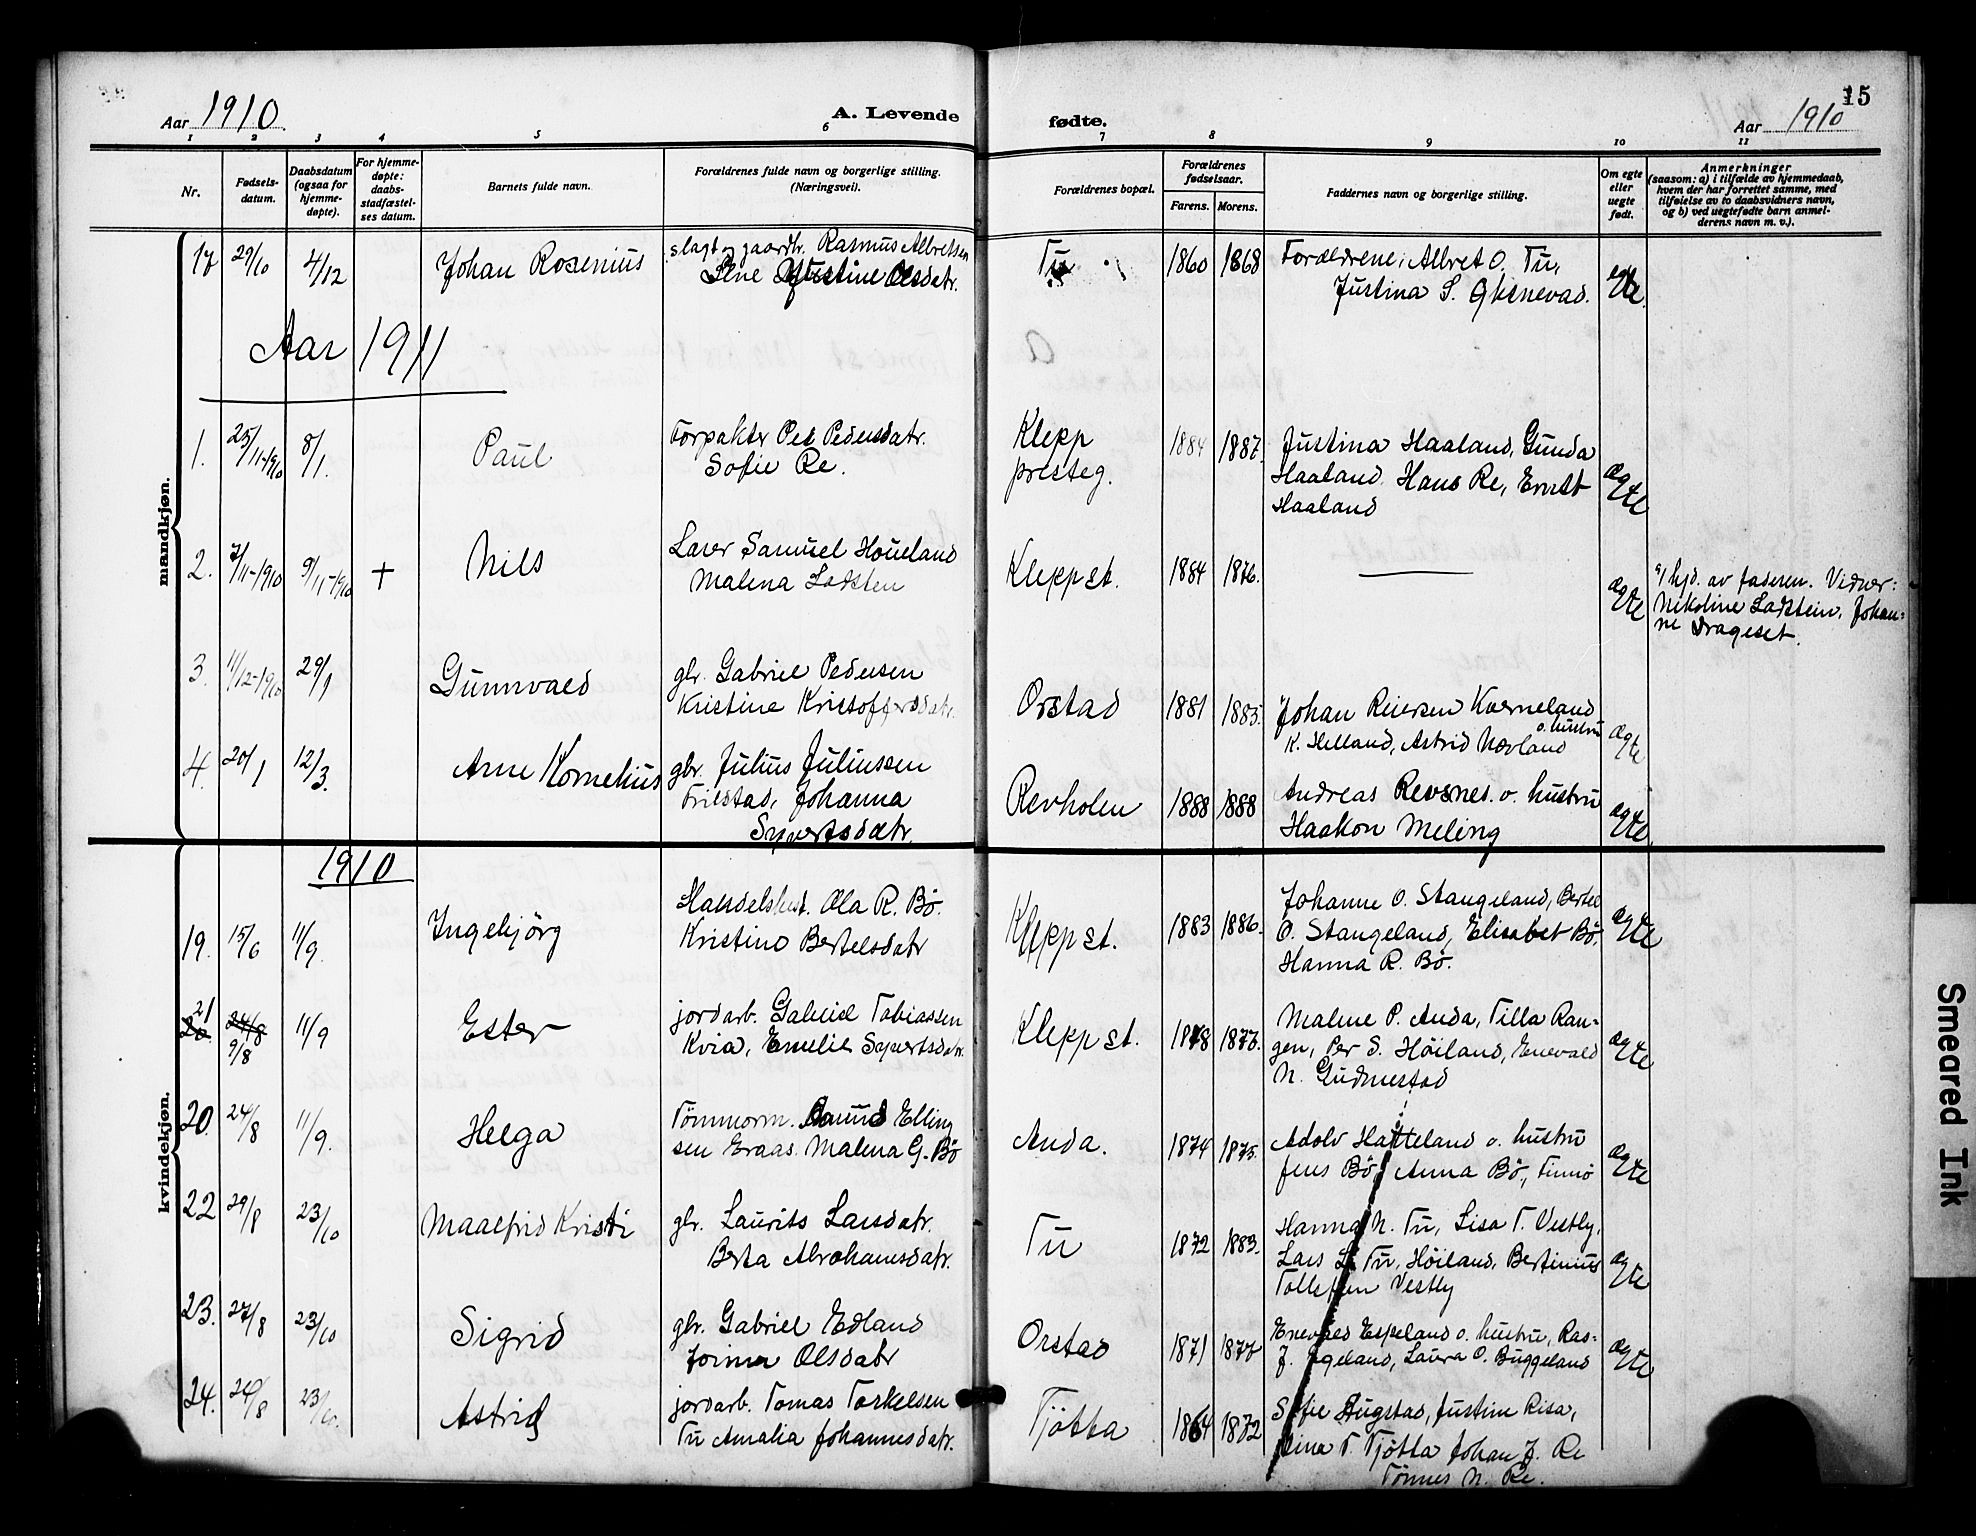 15
Aar 1910. A. Levende fødte. Aar 1910
1 2 3 4 5 6 7 8 9 10 11
Nr.
Fødsels-
datum.
Daabsdatum
(ogsaa for
hjemme-
døpte).
For hjemme-
døpte:
daabs-
stadfæstel-
ses datum.
Barnets fulde navn.
Forældrenes fulde navn og borgerlige stilling.
(Næringsvei).
Forældrenes bopæl.
Forældrenes
fødselsaar.
Farens. Morens.
Faddernes navn og borgerlige stilling.
Om egte
eller
uegte
født.
Anmerkninger
(saasom: a) i tilfælde av hjemmedaab,
hvem der har forrettet samme, med
tilføielse av to daabsvidners navn,
og b) ved uegtefødte barn anmel-
derens navn m. v.).
mandkjøn.
17 29/10 4/12 Johan Rosenius
slagt. o gaardbr. Rasmus Albretsen
Justine Olsdatr.
Tu 1860 1868
Forældrene, Albret O. Tu,
Justina S. Gksnevad.
egte
Aar 1911
1. 25/11-1910 8/1. Paul
Forpakter Per Pedersdatr.
Sofie Re.
Klepp
presteg.
1884 1887.
Justina Haaland, Gunda
Haaland. Hans Re, Ernst
Haaland
ægte
2. 7/11-1910 9/11-1910 + Nils
Lærer Samuel Houeland
Malena Ladsten
Klepp st. 1884 1876.
ægte
9/ hjd. av faderen. Vidner:
Nikoline Ladstein, Johan-
ne Drageset.
3. 11/12-1910 29/1 Gunnvald
gbr. Gabriel Pedersen
Kristine Kristoffersdatr.
Orstad 1881 1885.
Johan Reiersen Kverneland
o. hustru
K. Helland, Astrid Norland
ægte
4. 20/1 12/3. Arne Kornelius
gbr. Julius Juliussen
Friestad, Johanna
Syvertsdatr.
Revholen 1888 1888
Andreas Revsnes. o. hustru
Haakon Meling
ægte
kvindekjøn.
1910
19. 15/6 11/9. Ingebjörg
Handelsbest. Ola R. Bö.
Kristine Bertelsdatr
Klepp st. 1883 1886.
Johanne O. Stangeland, Bertel
O. Stangeland, Elisabet Bö.
Hanna R. Bö.
ægte
21
20. 24/8 11/9 Ester
9/8
jordarb. Gabriel Tobiassen
Kvia, Emelie Syvertsdatr.
Klepp st. 1878 1873.
Malene P. Anda, Tilla Ran-
gen, Per S. Höiland, Enevald
N. Gudmestad
ægte
20. 24/8 11/9. Helga
Tömmerm. Aanund Elling
sen Eraas. Malena G. Bö
Anda. 1874 1875.
Adolv Hatteland o. hustru
Jens Bö, Anna Bö, Finnö
ægte
22 29/8 23/10 Maalfrid Kristi
gbr. Laurits Larsdatr.
Berta Abrahamsdatr.
Tu 1872 1883.
Hanna N. Tu, Lisa T. Vestly,
Lars L. Tu, Höiland, Bertinius
Tollefsen Vestly
ægte
23. 27/8 23/10 Sigrid
gbr. Gabriel Edland
Olsdatr
Orstad 1871 1877
Enevald Espeland o. hustru, Ras-
J. Egeland, Laura O. Buggeland
ægte
24. 24/8 23/10. Astrid
jordarb. Tomas Torkelsen
Tu Amalia Johannesdatr.
Tjötta 1864 1872
Sofie Augstad, Justine Risa,
Stina T. Tjötta Johan J. Re
Tönnes N. Re.
Smeared Ink